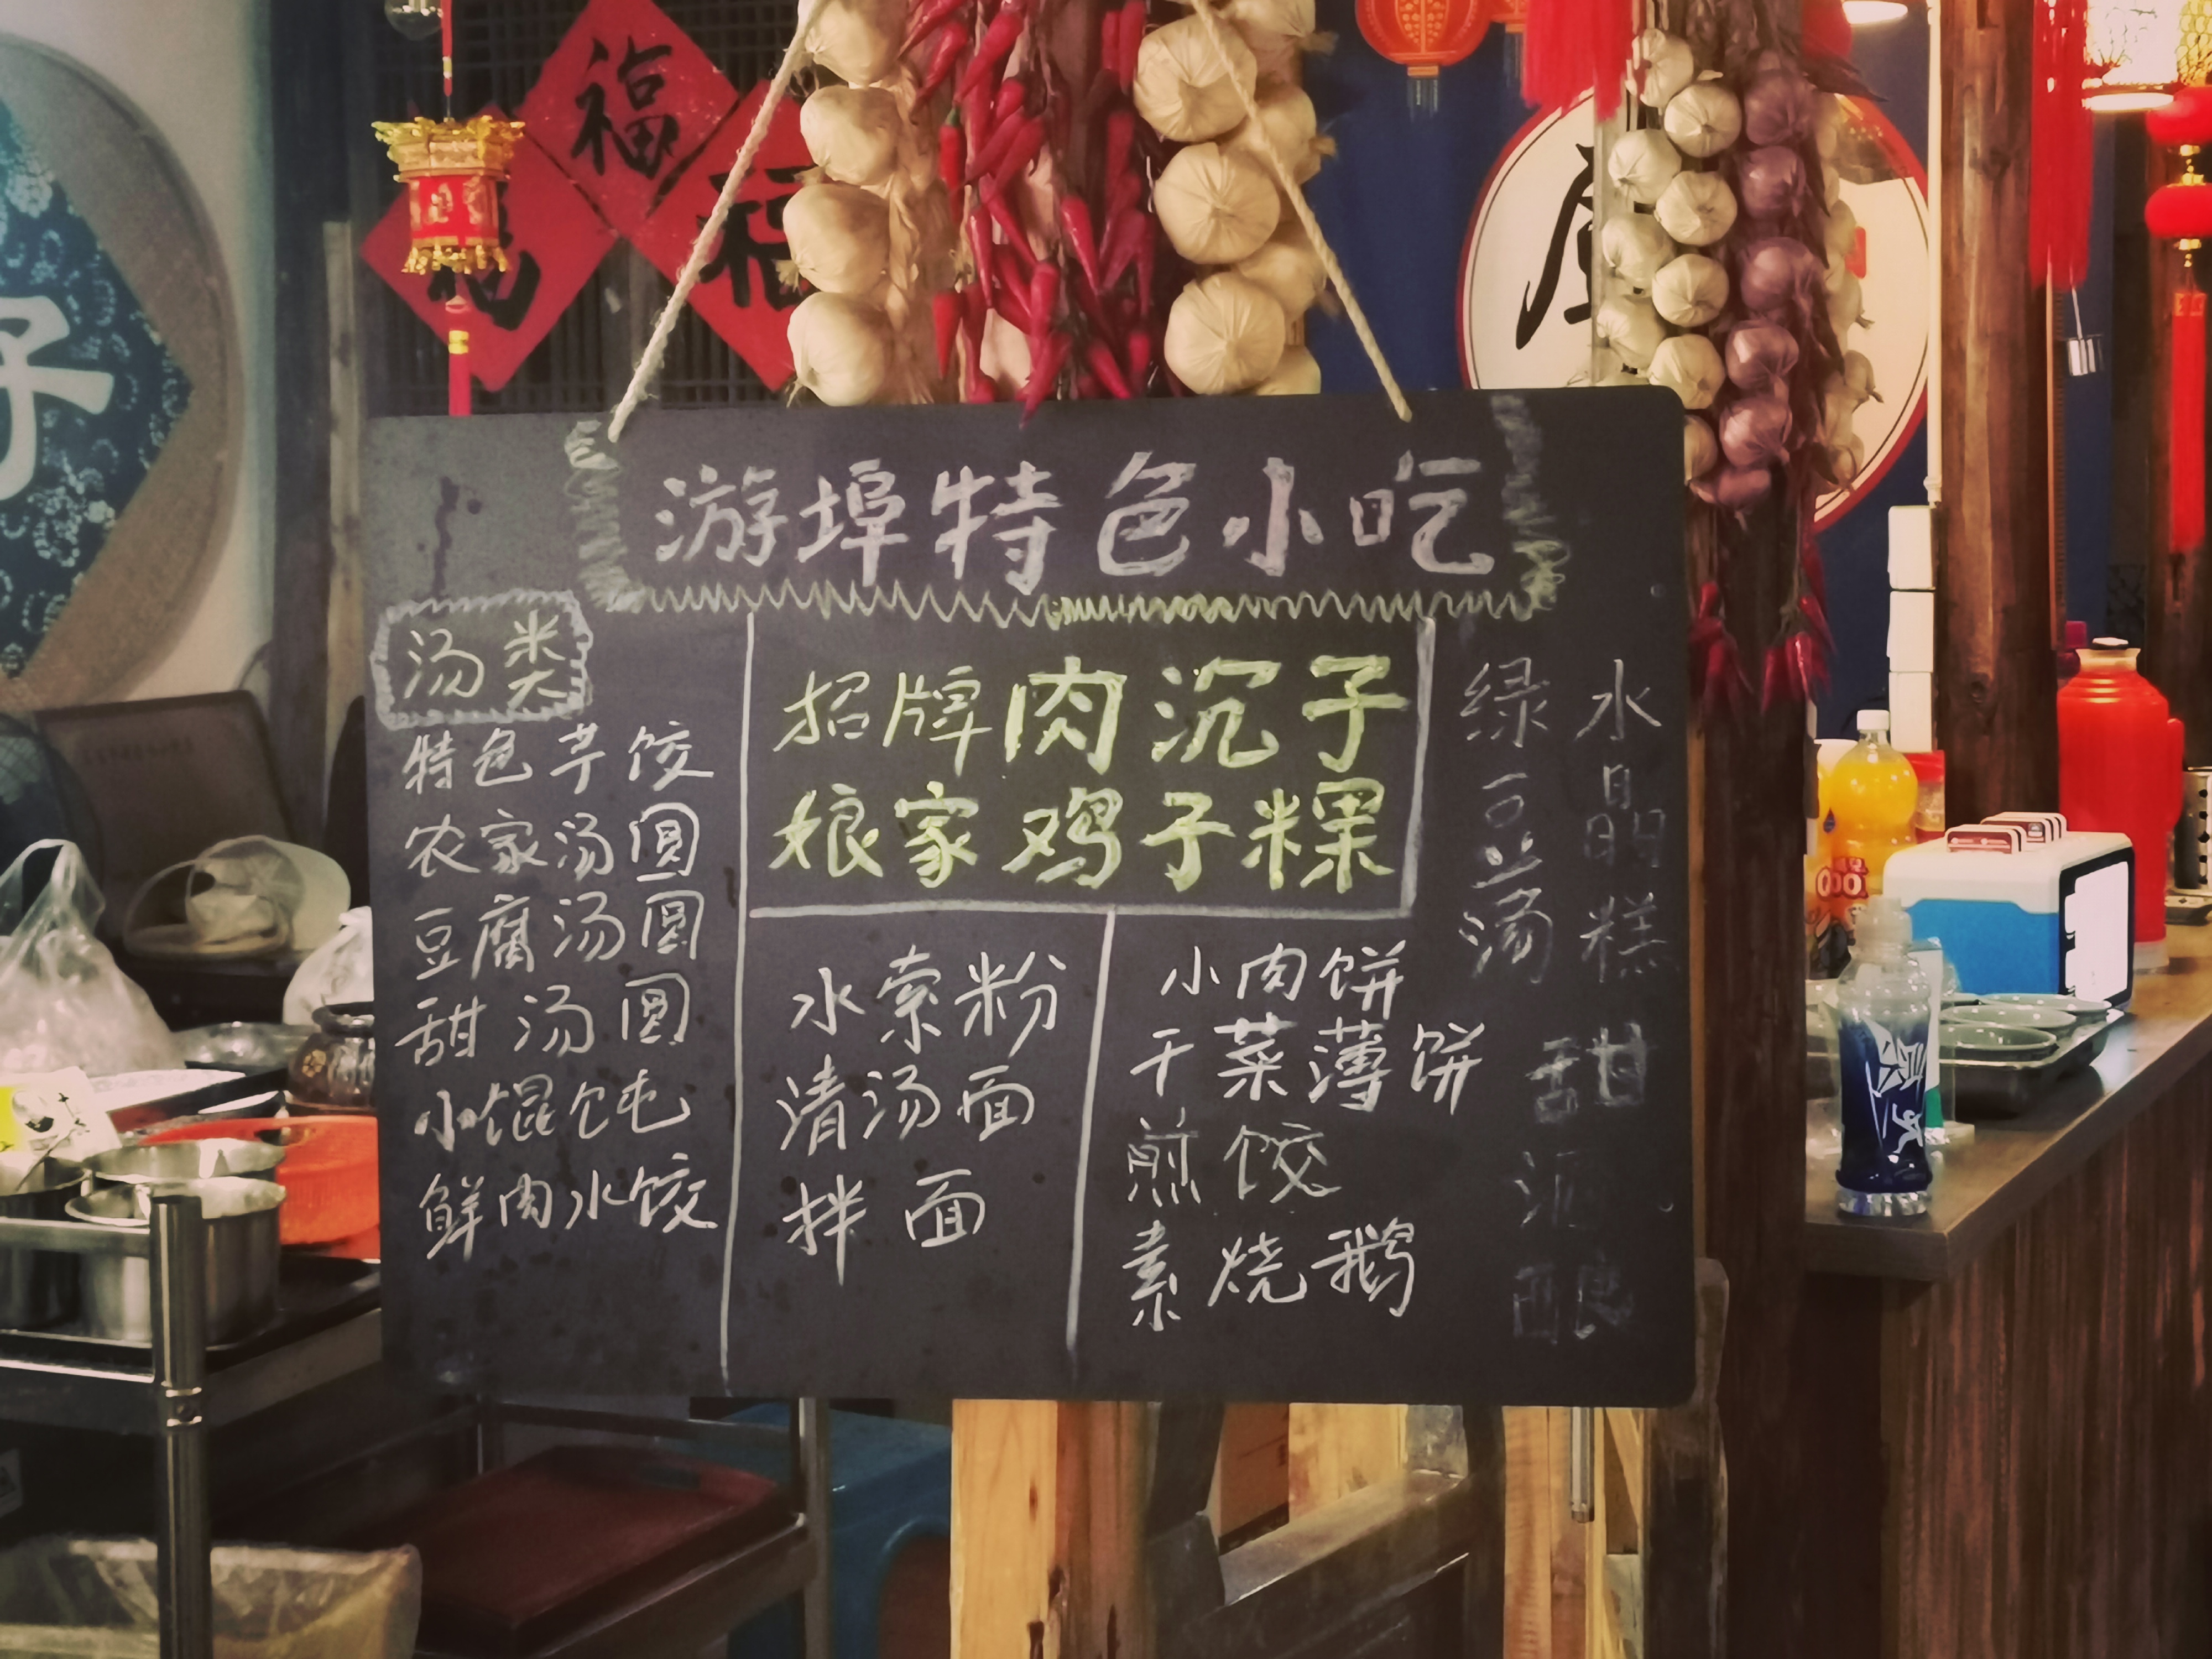 福
福
福
游埠特色小吃
汤类
特色芋饺
农家汤圆
豆腐汤圆
甜汤圆
小馄饨
鲜肉水饺
招牌肉沉子
娘家鸡子粿
水索粉
清汤面
拌面
小肉饼
干菜薄饼
煎饺
素烧鹅
水晶糕
绿豆汤
甜酒酿
子